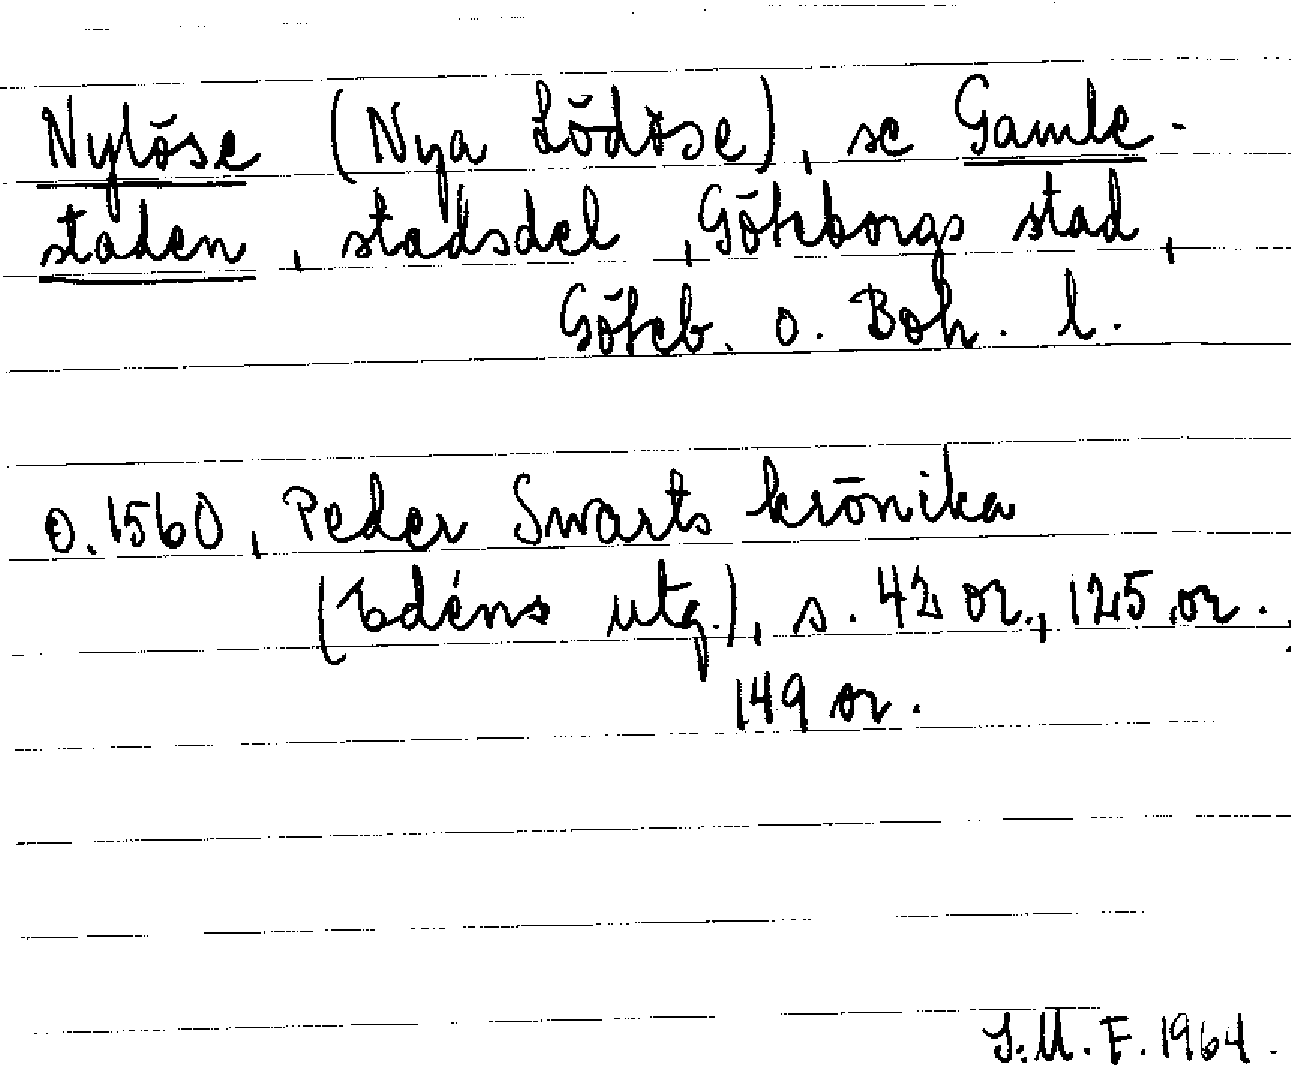 Nylöse (Nya Lödöse), se Gamle-
staden, stadsdel, Göteborgs stad,
Göteb. o. Boh. l.
o. 1560, Peder Swarts krönika
(Edéns utg.), s. 42 or., 125 or.,
149 or.
J.M.F. 1964.